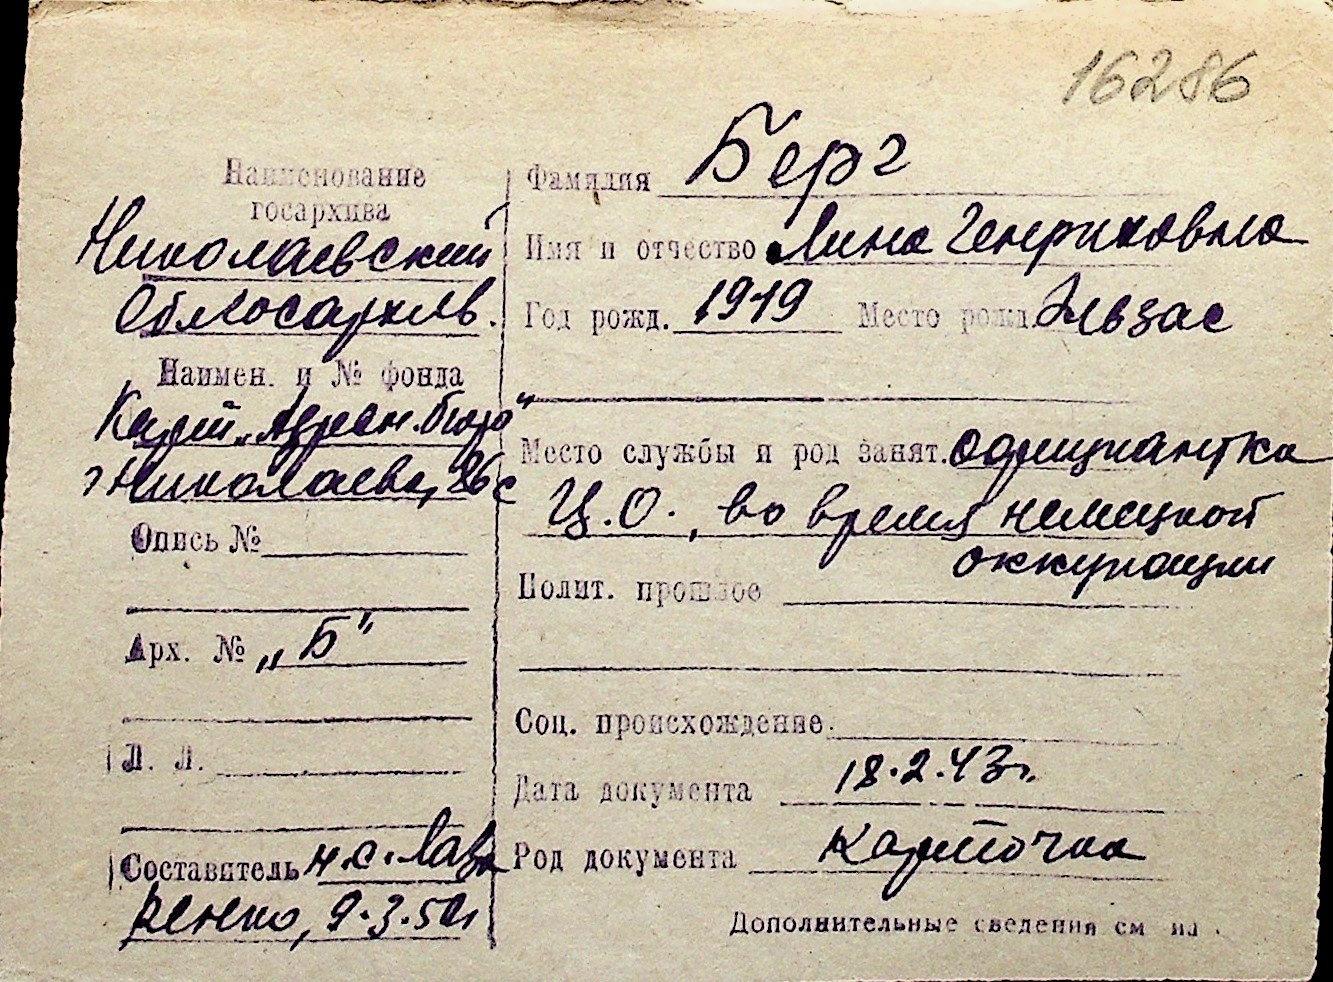 16286
Наименование
госархива
Николаевский
Облгосархив.
Наимен. и № фонда
Карт. „Адресн. бюро"
г Николаева, 86 с
Опись №
Арх. № „Б"
Л. Л.
Составитель н.с. Лаза
ренко, 9.3.50г
Фамилия Берг
Имя и отчество Лина Генриховна
Год рожд. 1919 Место рожд. Эльзас
Место службы и род занят. официантка
Ц.О., во время немецкой
оккупации
Полит. прошлое
Соц. происхождение
Дата документа 18.2.43г.
Род документа карточка
Дополнительные сведения см на